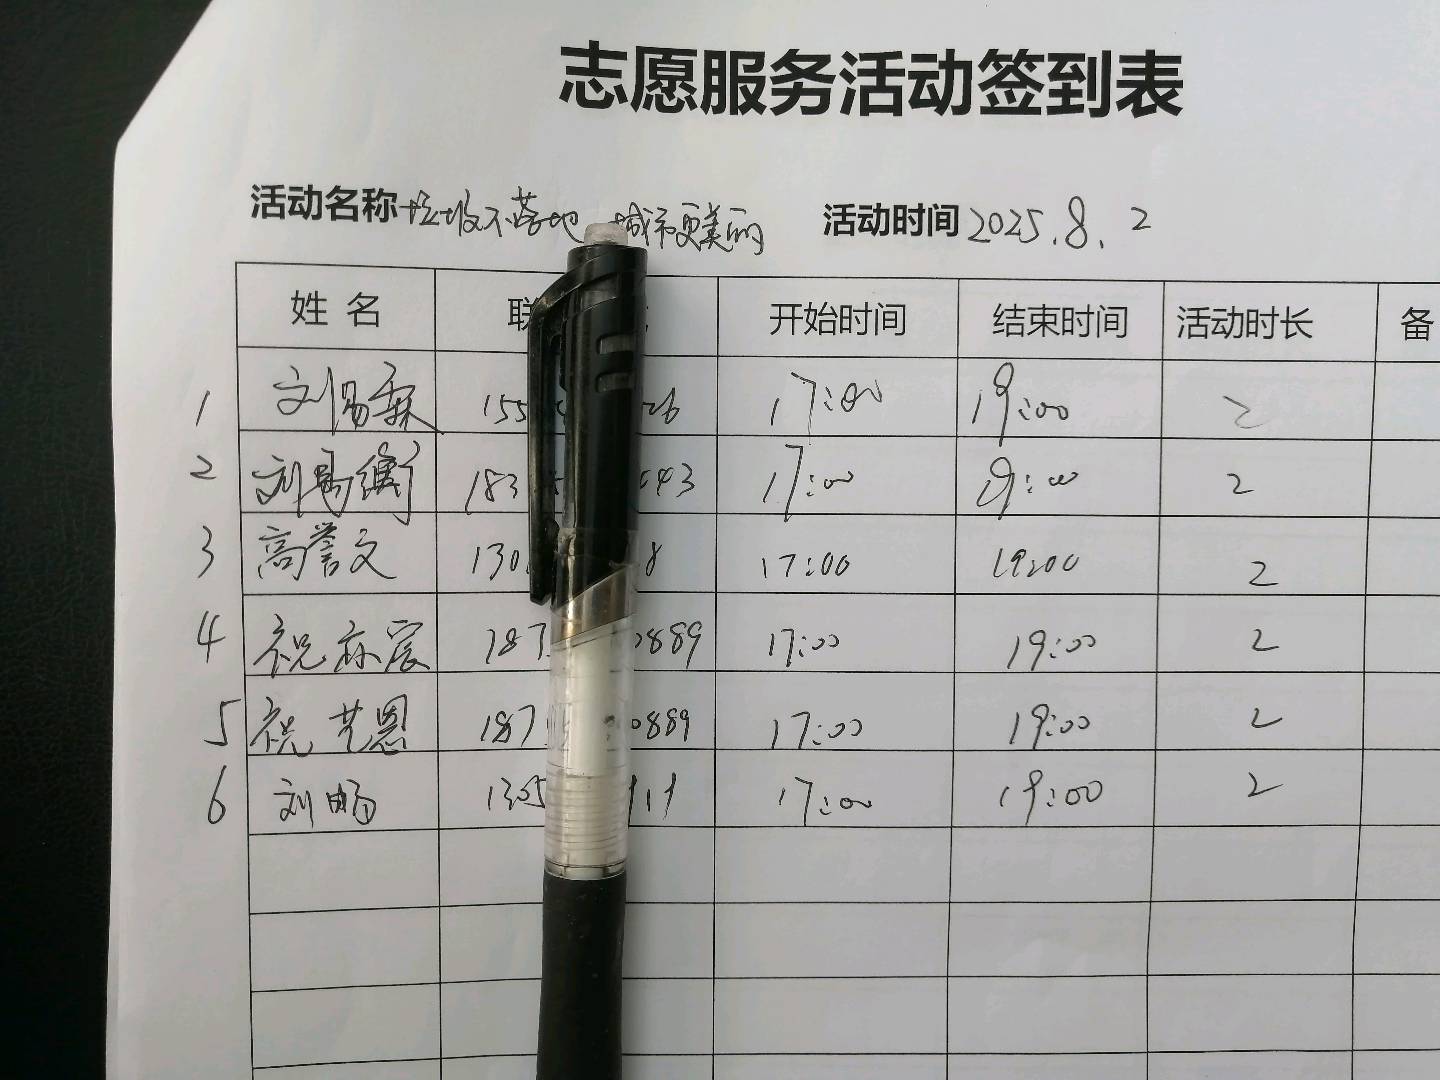 志愿服务活动签到表
活动名称 垃圾不落地 城市更美丽 活动时间 2025.8.2
姓名 联 开始时间 结束时间 活动时长 备
1 刘易霖 155 26 17:00 19:00 2
2 刘易衡 183 43 17:00 19:00 2
3 高誉文 130 8 17:00 19:00 2
4 祝宸 187 0889 17:00 19:00 2
5 祝艺恩 187 0889 17:00 19:00 2
6 刘畅 1305 111 17:00 19:00 2